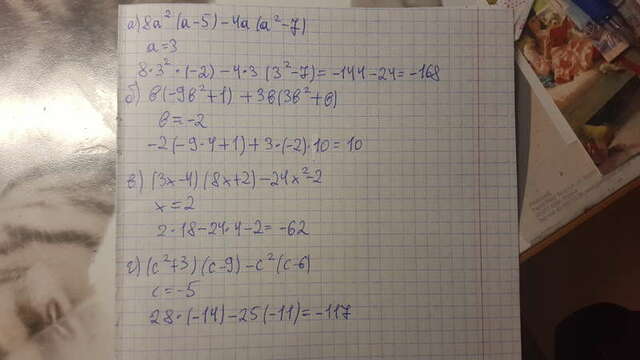 а) 8a²(a-5)-4a(a²-7)
a=3
8·3²·(-2)-4·3(3²-7)=-144-24=-168
б) в(-9в²+1)+3в(3в²+в)
в=-2
-2(-9·4+1)+3·(-2)·10=10
в) (3x-4)(8x+2)-24x²-2
x=2
2·18-24·4-2=-62
г) (c²+3)(c-9)-c²(c-6)
c=-5
28·(-14)-25(-11)=-117